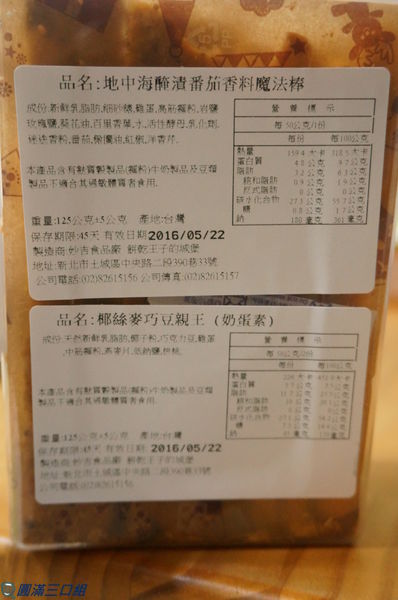 品名:地中海醃漬番茄香料魔法棒
成份:新鮮乳脂肪,細砂糖,雞蛋,高筋麵粉,岩鹽
玫瑰鹽,葵花油,百里香葉,水,活性酵母,乳化劑,
迷迭香粉,番茄,橄欖油,紅椒,洋香芹.
本產品含有麩質穀製品(麵粉)牛奶製品及豆類
製品不適合其過敏體質者食用.
重量:125公克±5公克 產地:台灣
保存期限:45天 有效日期2016/05/22
製造商:妙吉食品廠 餅乾王子的城堡
地址:新北市土城區中央路二段390巷33號
公司電話(02)82615156 公司傳真(02)82615157
營養標示
每50公克/1份 每100公克
每份
熱量 159.4 大卡 318.5 大卡
蛋白質 4.8 公克 9.7 公克
脂肪 3.2 公克 6.3 公克
飽和脂肪 0.9 公克 1.9 公克
反式脂肪 0 公克 0 公克
碳水化合物 27.3 公克 55.7 公克
糖 0.8 公克 1.7 公克
鈉 180 毫克 361 毫克
品名:椰絲麥巧豆親王 (奶蛋素)
成份:天然新鮮乳脂肪,椰子粉,巧克力豆,雞蛋
,中筋麵粉,燕麥片,低鈉鹽,核桃,
本產品含有麩質穀製品(麵粉)牛奶製品及豆類
製品不適合其過敏體質者食用.
重量:125公克±5公克 產地:台灣
保存期限:45天 有效日期2016/05/22
製造商:妙吉食品廠 餅乾王子的城堡
地址:新北市土城區中央路二段390巷33號
公司電話:(02)82615156
營養標示
每份 每100公克
熱量
蛋白質
脂肪
飽和脂肪
反式脂肪
碳水化合物
糖
鈉
圓滿三口組